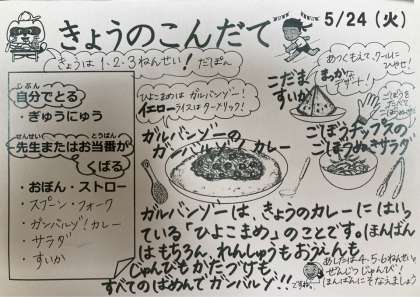 きょうのこんだて
5/24(火)
きょうは1・2・3ねんせい!だぽん
自分でとる
じぶん
・ぎゅうにゅう
先生またはお当番が
せんせい
とうばん
くばる
・おぼん・ストロー
・スプーン・フォーク
・ガンバルゾ!カレー
・サラダ
・すいか
ひよこまめはガルバンゾー!
イエローライスはターメリック!
ガルバンゾーの
ガンバルゾー!カレー
こだま
すいか
あつくもえて、クールに
ひやせ!
まっかな
デザート!
ごぼうチップスの
ごほうびぬきサラダ
ガルバンゾーは、きょうのカレーにはいっ
ている「ひよこまめ」のことです。ほんばん
はもちろん、れんしゅうもおうえんも
じゅんびもかたづけも
すべてのばめんでガンバルゾ!!
あしたは4.5.6ねんせい
ぜんじつじゅんび!
ほんばんにそなえましょう
ですね。